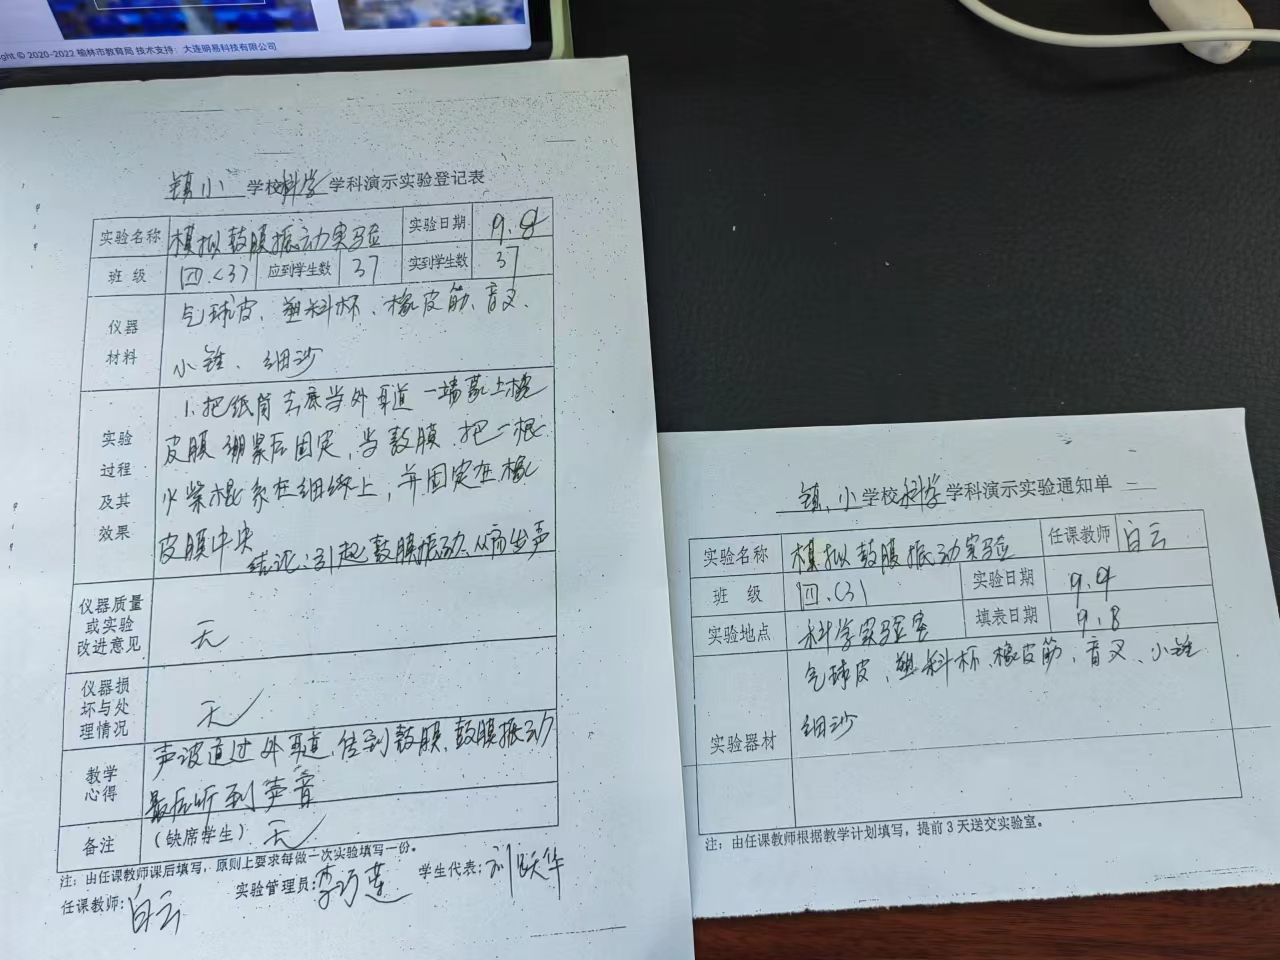 ght © 2020-2022 榆林市教育局 技术支持：大连明易科技有限公司
镇小 学校科学学科演示实验登记表
实验名称 模拟鼓膜振动实验 实验日期 9.9
班 级 四.(3) 应到学生数 37 实到学生数 37
仪器 材料 气球皮、塑料杯、橡皮筋、音叉、
小锤、细沙
实验 过程 及其 效果 1.把纸筒去底当外耳道一端蒙上橡
皮膜绷紧后固定,当鼓膜.把一根
火柴棍系在细线上,并固定在橡
皮膜中央
结论:引起鼓膜振动、从而发声
仪器质量 或实验 改进意见 无
仪器损 坏与处 理情况 无
教学 心得 声波通过外耳道,传到鼓膜、鼓膜振动
最后听到声音
备注 （缺席学生） 无
注：由任课教师课后填写，原则上要求每做一次实验填写一份。
任课教师:白云 实验管理员:李巧莲 学生代表:刘跃华
镇小学校科学学科演示实验通知单
实验名称 模拟鼓膜振动实验 任课教师 白云
班 级 四.(3) 实验日期 9.9
实验地点 科学实验室 填表日期 9.8
实验器材 气球皮、塑料杯、橡皮筋、音叉、小锤
细沙
注：由任课教师根据教学计划填写，提前3天送交实验室。